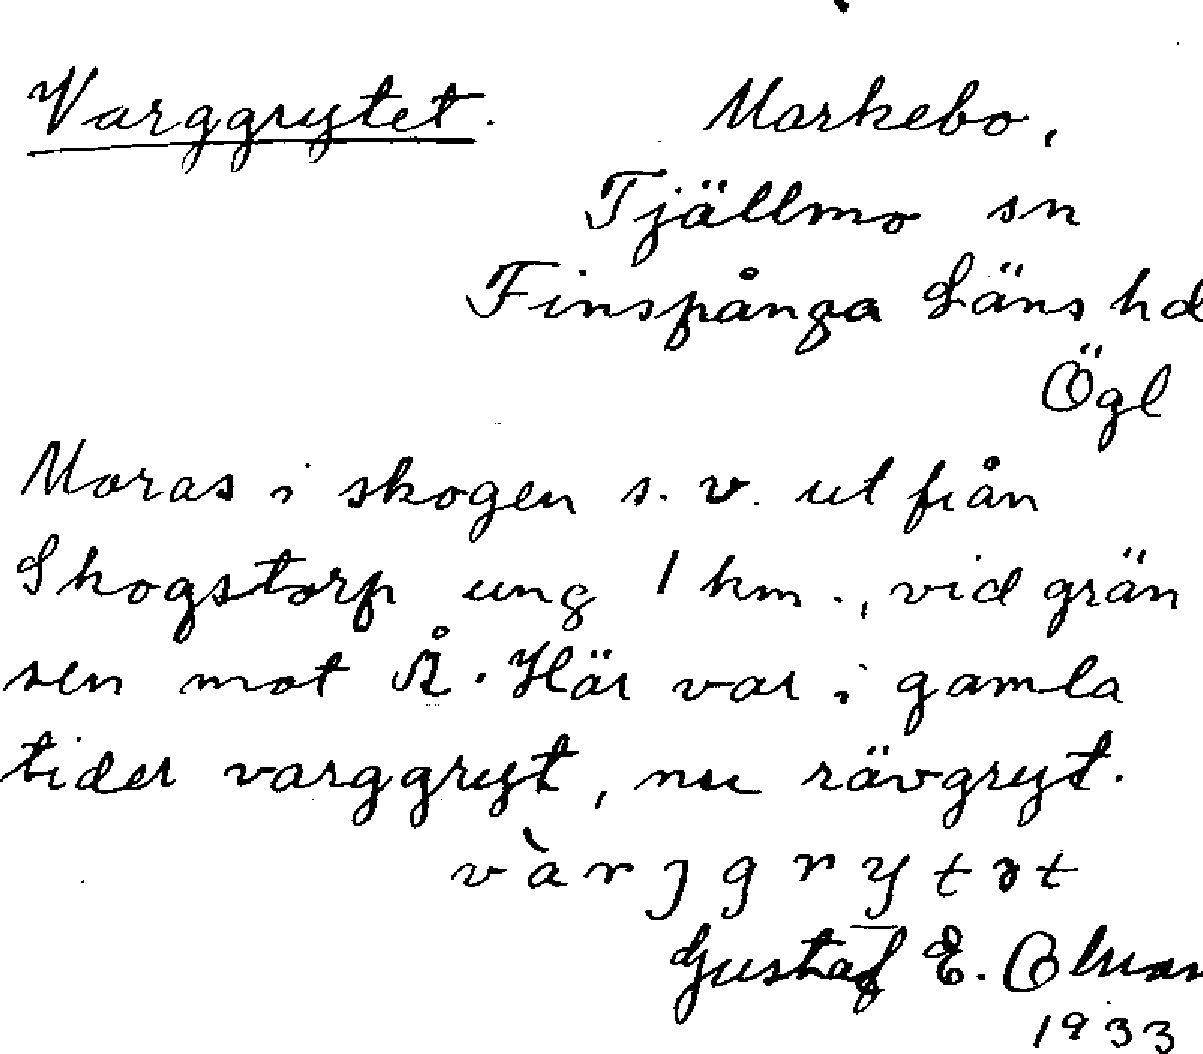 Varggrytet. Markebo,
Tjällmo sn
Finspånga Läns hd
Ögl
Moras i skogen s. v. ut från
Skogstorp ung 1 km., vid grän
sen mot Å. Här var i gamla
tider varggryt, nu rävgryt.
và r j g r y t ə t
Gustaf E.
1933